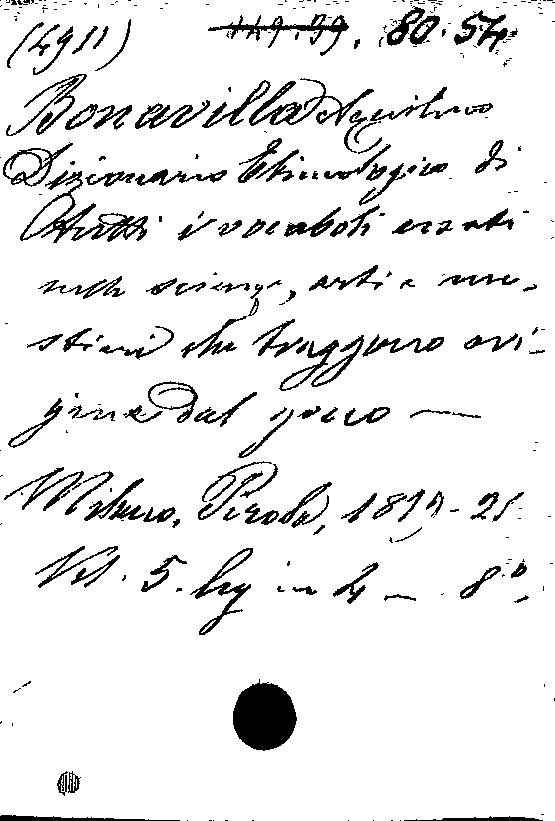 (4911) 149.39. 80.54.
Bonavilla Aquilino
Dizionario Etimologico di
tutti i vocaboli usati
nelle scienze, arti e me-
stieri che traggono ori-
gine dal greco —
Milano, Pirola, 1819-21
Vol. 5. leg in 4 — 8°.